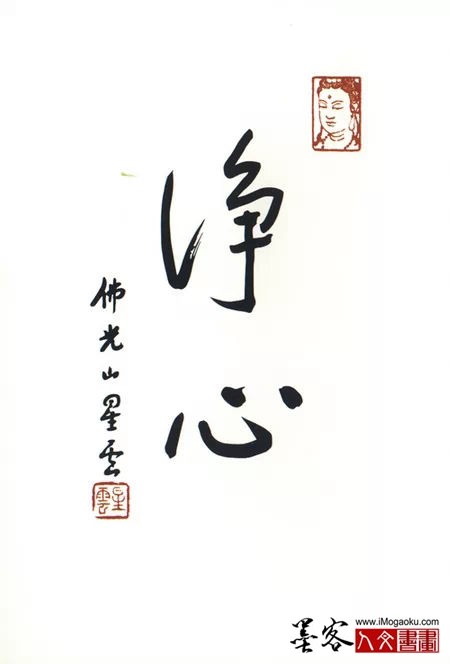 淨心
佛光山星雲
星雲
墨客
www.iMogaoku.com
人文書畫